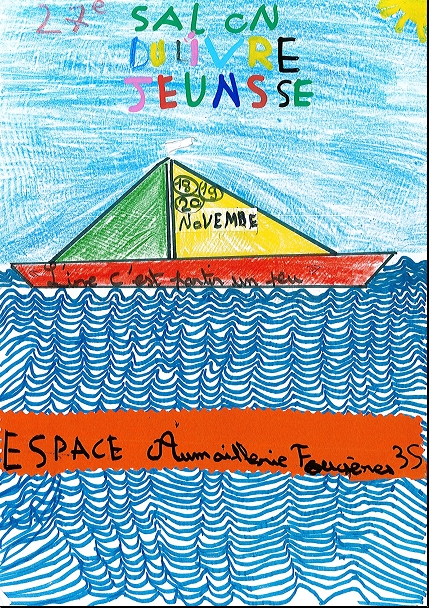 27e
SALON
DU LIVRE
JEUNSSE
18 19
20
NOVEMBE
Lire c'est partir un peu
ESPACE Aumaillerie Fougères 35